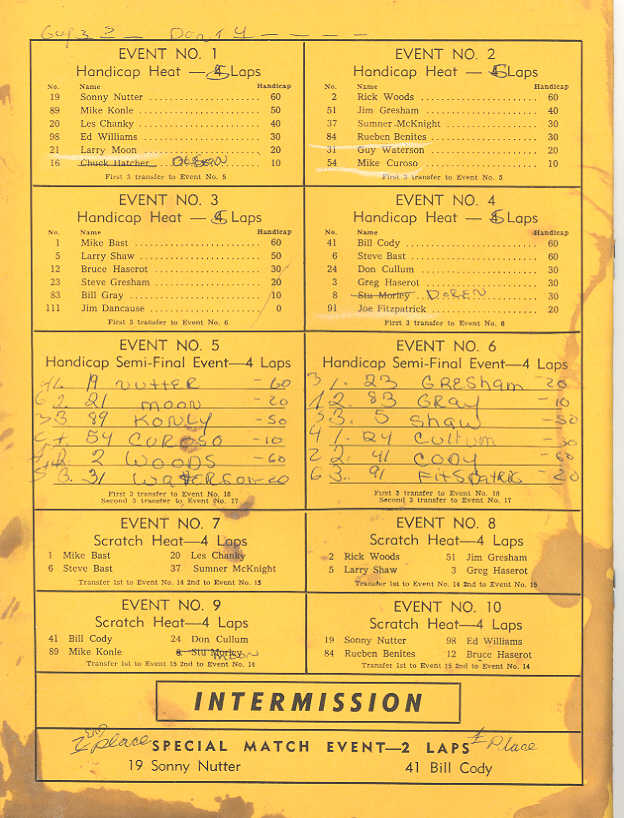 EVENT NO. 1
Handicap Heat — 5 Laps
No. Name Handicap
19 Sonny Nutter 60
89 Mike Konle 50
20 Les Chanky 40
98 Ed Williams 30
21 Larry Moon 20
16 Chuck Hatcher 10
First 3 transfer to Event No. 5
EVENT NO. 2
Handicap Heat — 5 Laps
No. Name Handicap
2 Rick Woods 60
51 Jim Gresham 40
37 Sumner McKnight 30
84 Rueben Benites 30
31 Guy Waterson 20
54 Mike Curoso 10
First 3 transfer to Event No. 5
EVENT NO. 3
Handicap Heat — 5 Laps
No. Name Handicap
1 Mike Bast 60
5 Larry Shaw 50
12 Bruce Haserot 30
23 Steve Gresham 20
83 Bill Gray 10
111 Jim Dancause 0
First 3 transfer to Event No. 6
EVENT NO. 4
Handicap Heat — 5 Laps
No. Name Handicap
41 Bill Cody 60
6 Steve Bast 60
24 Don Cullum 30
3 Greg Haserot 30
8 Stu Morley DOREN 30
91 Joe Fitzpatrick 20
First 3 transfer to Event No. 6
EVENT NO. 5
Handicap Semi-Final Event—4 Laps
19 NUTTER - 60
2. 21 MOON - 20
3. 89 KONLY - 50
54 CUROSO - 10
2 WOODS - 60
3. 31 WATERSON - 20
First 3 transfer to Event No. 18
Second 3 transfer to Event No. 17
EVENT NO. 6
Handicap Semi-Final Event—4 Laps
3 1. 23 GRESHAM - 20
1 2. 83 GRAY - 10
5 3. 5 SHAW - 50
4 1. 24 CULLUM - 30
2 2. 41 CODY - 60
6 3. 91 FITSPATRIC - 20
First 3 transfer to Event No. 18
Second 3 transfer to Event No. 17
EVENT NO. 7
Scratch Heat—4 Laps
1 Mike Bast 20 Les Chanky
6 Steve Bast 37 Sumner McKnight
Transfer 1st to Event No. 14 2nd to Event No. 15
EVENT NO. 8
Scratch Heat—4 Laps
2 Rick Woods 51 Jim Gresham
5 Larry Shaw 3 Greg Haserot
Transfer 1st to Event No. 14 2nd to Event No. 15
EVENT NO. 9
Scratch Heat—4 Laps
41 Bill Cody 24 Don Cullum
89 Mike Konle 8 Stu Morley
Transfer 1st to Event 15 2nd to Event No. 14
EVENT NO. 10
Scratch Heat—4 Laps
19 Sonny Nutter 98 Ed Williams
84 Rueben Benites 12 Bruce Haserot
Transfer 1st to Event 15 2nd to Event No. 14
INTERMISSION
2ND Place SPECIAL MATCH EVENT—2 LAPS 1st Place
19 Sonny Nutter 41 Bill Cody